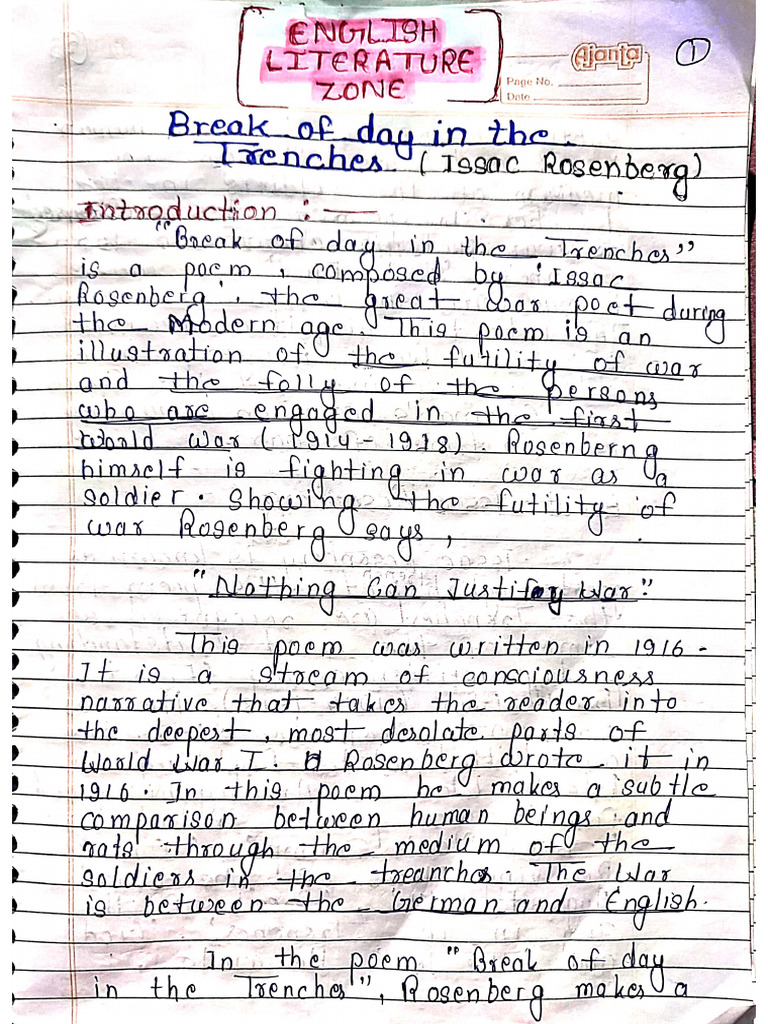 ENGLISH
LITERATURE
ZONE
Ajanta
Page No.
Date
1
Break of day in the
Trenches (Issac Rosenberg)
Introduction :—
"Break of day in the Trenches"
is a poem, composed by 'Issac
Rosenberg'. the great war poet during
the Modern age. This poem is an
illustration of the futility of war
and the folly of the persons
who are engaged in the first
World war (1914-1918). Rosenberng
himself is fighting in war as a
soldier. Showing the futility of
war Rosenberg says,
"Nothing Can Justify War."
This poem was written in 1916-
It is a stream of consciousness
narrative that takes the reader into
the deepest, most desolate parts of
World War I. Rosenberg wrote it in
1916. In this poem he makes a subtle
comparison between human beings and
rats through the medium of the
soldiers in the treanches. The War
is between the German and English.
In the poem "Break of day
in the Trenches", Rosenberg makes a